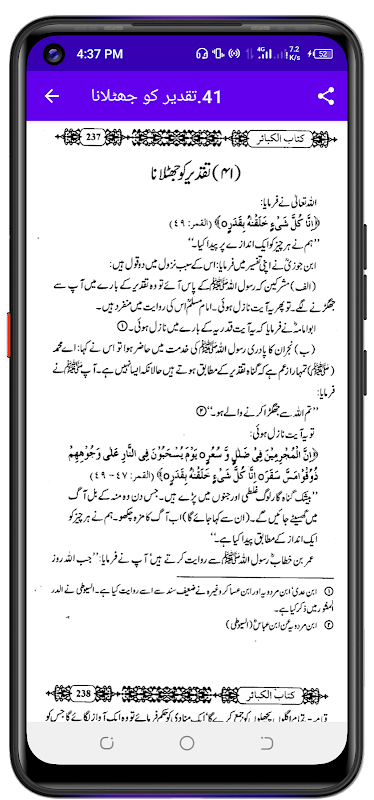 4:37 PM 4G 7.2 K/s 52
41.تقدیر کو جھٹلانا
237 کتاب الکبائر
(۴۱) تقدیر کو جھٹلانا
اللہ تعالیٰ نے فرمایا:
﴿اِنَّا كُلَّ شَىْءٍ خَلَقْنٰهُ بِقَدَرٍ﴾ (القمر: ۴۹)
’’ہم نے ہر چیز کو ایک اندازے پر پیدا کیا۔‘‘
ابن جوزیؒ نے اپنی تفسیر میں فرمایا: اس کے سبب نزول میں دو قول ہیں:
(الف) مشرکین مکہ رسول اللہ ﷺ کے پاس آئے تو وہ تقدیر کے بارے میں آپ سے
جھگڑنے لگے۔ تو پھر یہ آیت نازل ہوئی۔ امام مسلمؒ اس کی روایت میں منفرد ہیں۔
ابو امامہؓ نے فرمایا کہ یہ آیت قدریہ کے بارے میں نازل ہوئی۔①
(ب) نجران کا پادری رسول اللہ ﷺ کی خدمت میں حاضر ہوا تو اس نے کہا: اے محمد
(ﷺ) تمہارا زعم ہے کہ گناہ تقدیر کے مطابق ہوتے ہیں حالانکہ ایسا نہیں ہے۔ آپ ﷺ نے
فرمایا:
’’تم اللہ سے جھگڑا کرنے والے ہو۔‘‘②
تو یہ آیت نازل ہوئی:
﴿اِنَّ الْمُجْرِمِيْنَ فِىْ ضَلٰلٍ وَّ سُعُرٍ ۝ يَوْمَ يُسْحَبُوْنَ فِى النَّارِ عَلٰى وُجُوْهِهِمْ
ذُوْقُوْا مَسَّ سَقَرَ ۝ اِنَّا كُلَّ شَىْءٍ خَلَقْنٰهُ بِقَدَرٍ﴾ (القمر: ۴۷-۴۹)
’’بیشک گناہ گار لوگ غلطی اور جنوں میں پڑے ہیں۔ جس دن وہ منہ کے بل آگ
میں گھسیٹے جائیں گے۔ (ان سے کہا جائے گا) اب آگ کا مزہ چکھو۔ ہم نے ہر چیز کو
ایک انداز کے مطابق پیدا کیا ہے۔‘‘
عمر بن خطابؓ رسول اللہ ﷺ سے روایت کرتے ہیں‘ آپ نے فرمایا: ’’جب اللہ روز
① ابن عدی‘ ابن مردویہ اور ابن عساکر وغیرہ نے ضعیف سند سے اسے روایت کیا ہے۔ السیوطی نے الدر
المنثور میں ذکر کیا ہے۔
② ابن مردویہ عن ابن عباسؓ (السیوطی)
238 کتاب الکبائر
قیامت تمام اگلوں پچھلوں کو جمع کرے گا‘ ایک منادی کو حکم فرمائے تو وہ ایک آواز لگائے گا جس کو